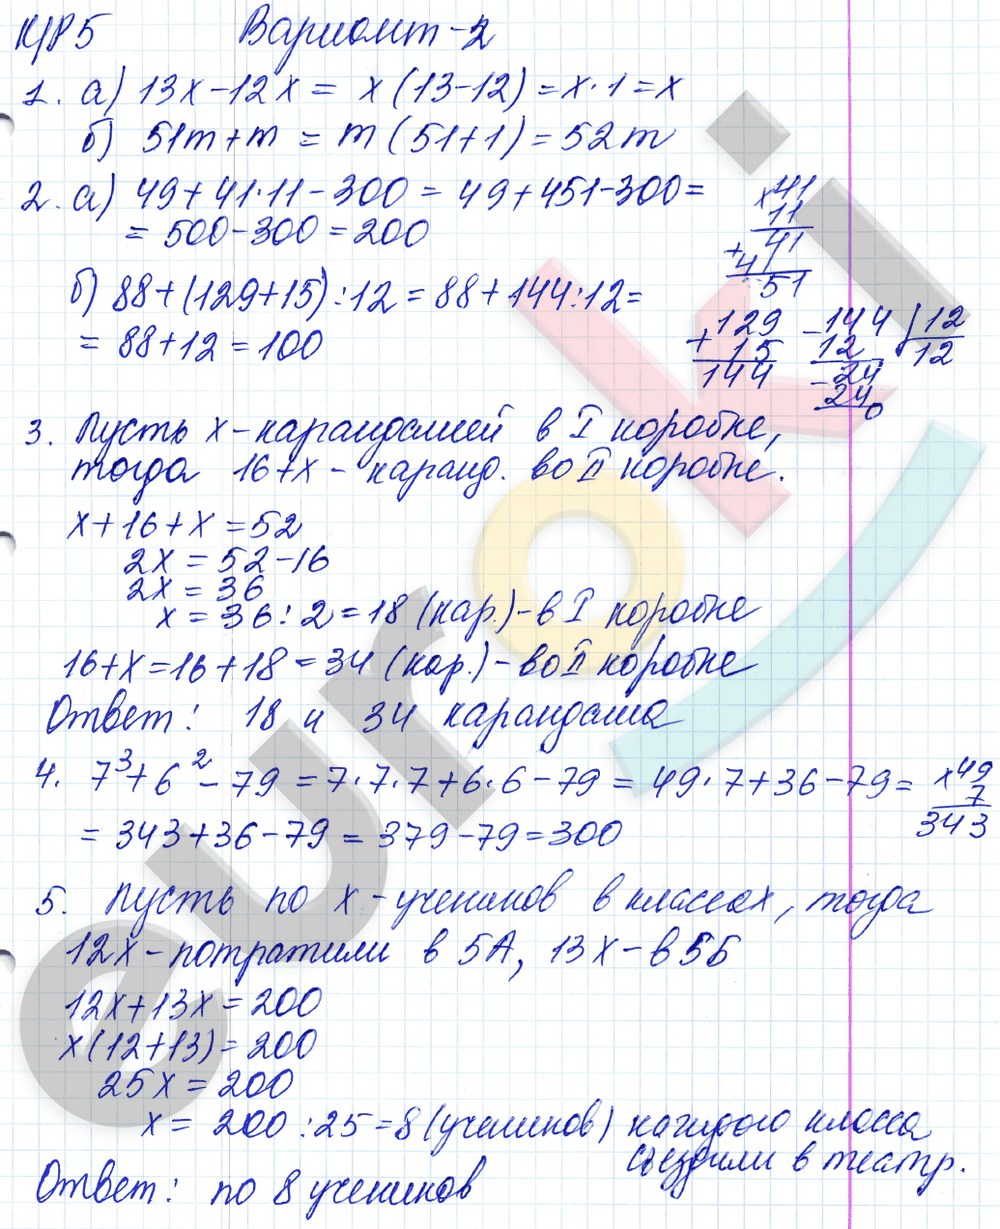 К/Р 5 Вариант-2
1. а) 13x-12x = x(13-12)=x·1=x
б) 51m+m = m(51+1)=52m
2. а) 49+41·11-300 = 49+451-300=
= 500-300=200
×41
11
+ 41
41
451
б) 88+(129+15):12=88+144:12=
= 88+12=100
+129
15
144
-144 | 12
12 12
-24
24
0
3. Пусть x-карандашей в I коробке,
тогда 16+x- каранд. во II коробке.
x+16+x=52
2x=52-16
2x=36
x=36:2=18 (кар.)-в I коробке
16+x=16+18=34 (кар.)-во II коробке
Ответ: 18 и 34 карандаша
4. 7³+6²-79=7·7·7+6·6-79=49·7+36-79=
= 343+36-79=379-79=300
×49
7
343
5. Пусть по x-учеников в классах, тогда
12x-потратили в 5А, 13x-в 5Б
12x+13x=200
x(12+13)=200
25x=200
x= 200:25=8 (учеников) каждого класса
съездили в театр.
Ответ: по 8 учеников
euroki